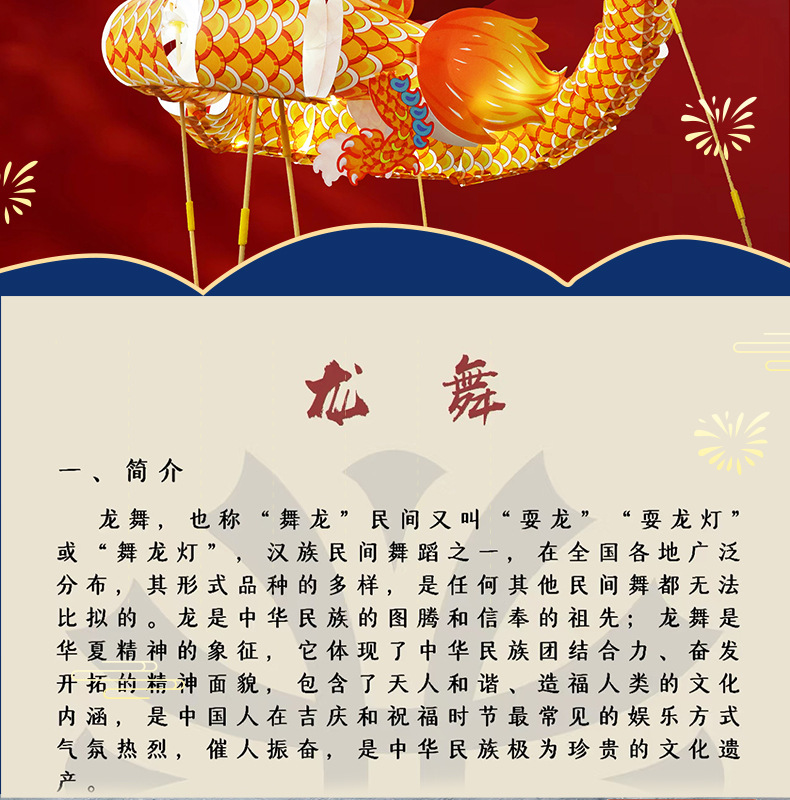 龙 舞
一、简介
龙舞，也称“舞龙”民间又叫“耍龙”“耍龙灯”
或“舞龙灯”，汉族民间舞蹈之一，在全国各地广泛
分布，其形式品种的多样，是任何其他民间舞都无法
比拟的。龙是中华民族的图腾和信奉的祖先；龙舞是
华夏精神的象征，它体现了中华民族团结合力、奋发
开拓的精神面貌，包含了天人和谐、造福人类的文化
内涵，是中国人在吉庆和祝福时节最常见的娱乐方式
气氛热烈，催人振奋，是中华民族极为珍贵的文化遗
产。